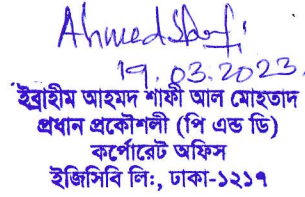 Ahmed Shafi
19.03.2023.
ইব্রাহীম আহমদ শাফী আল মোহতাদ
প্রধান প্রকৌশলী (পি এন্ড ডি)
কর্পোরেট অফিস
ইজিসিবি লি:, ঢাকা-১২১৭